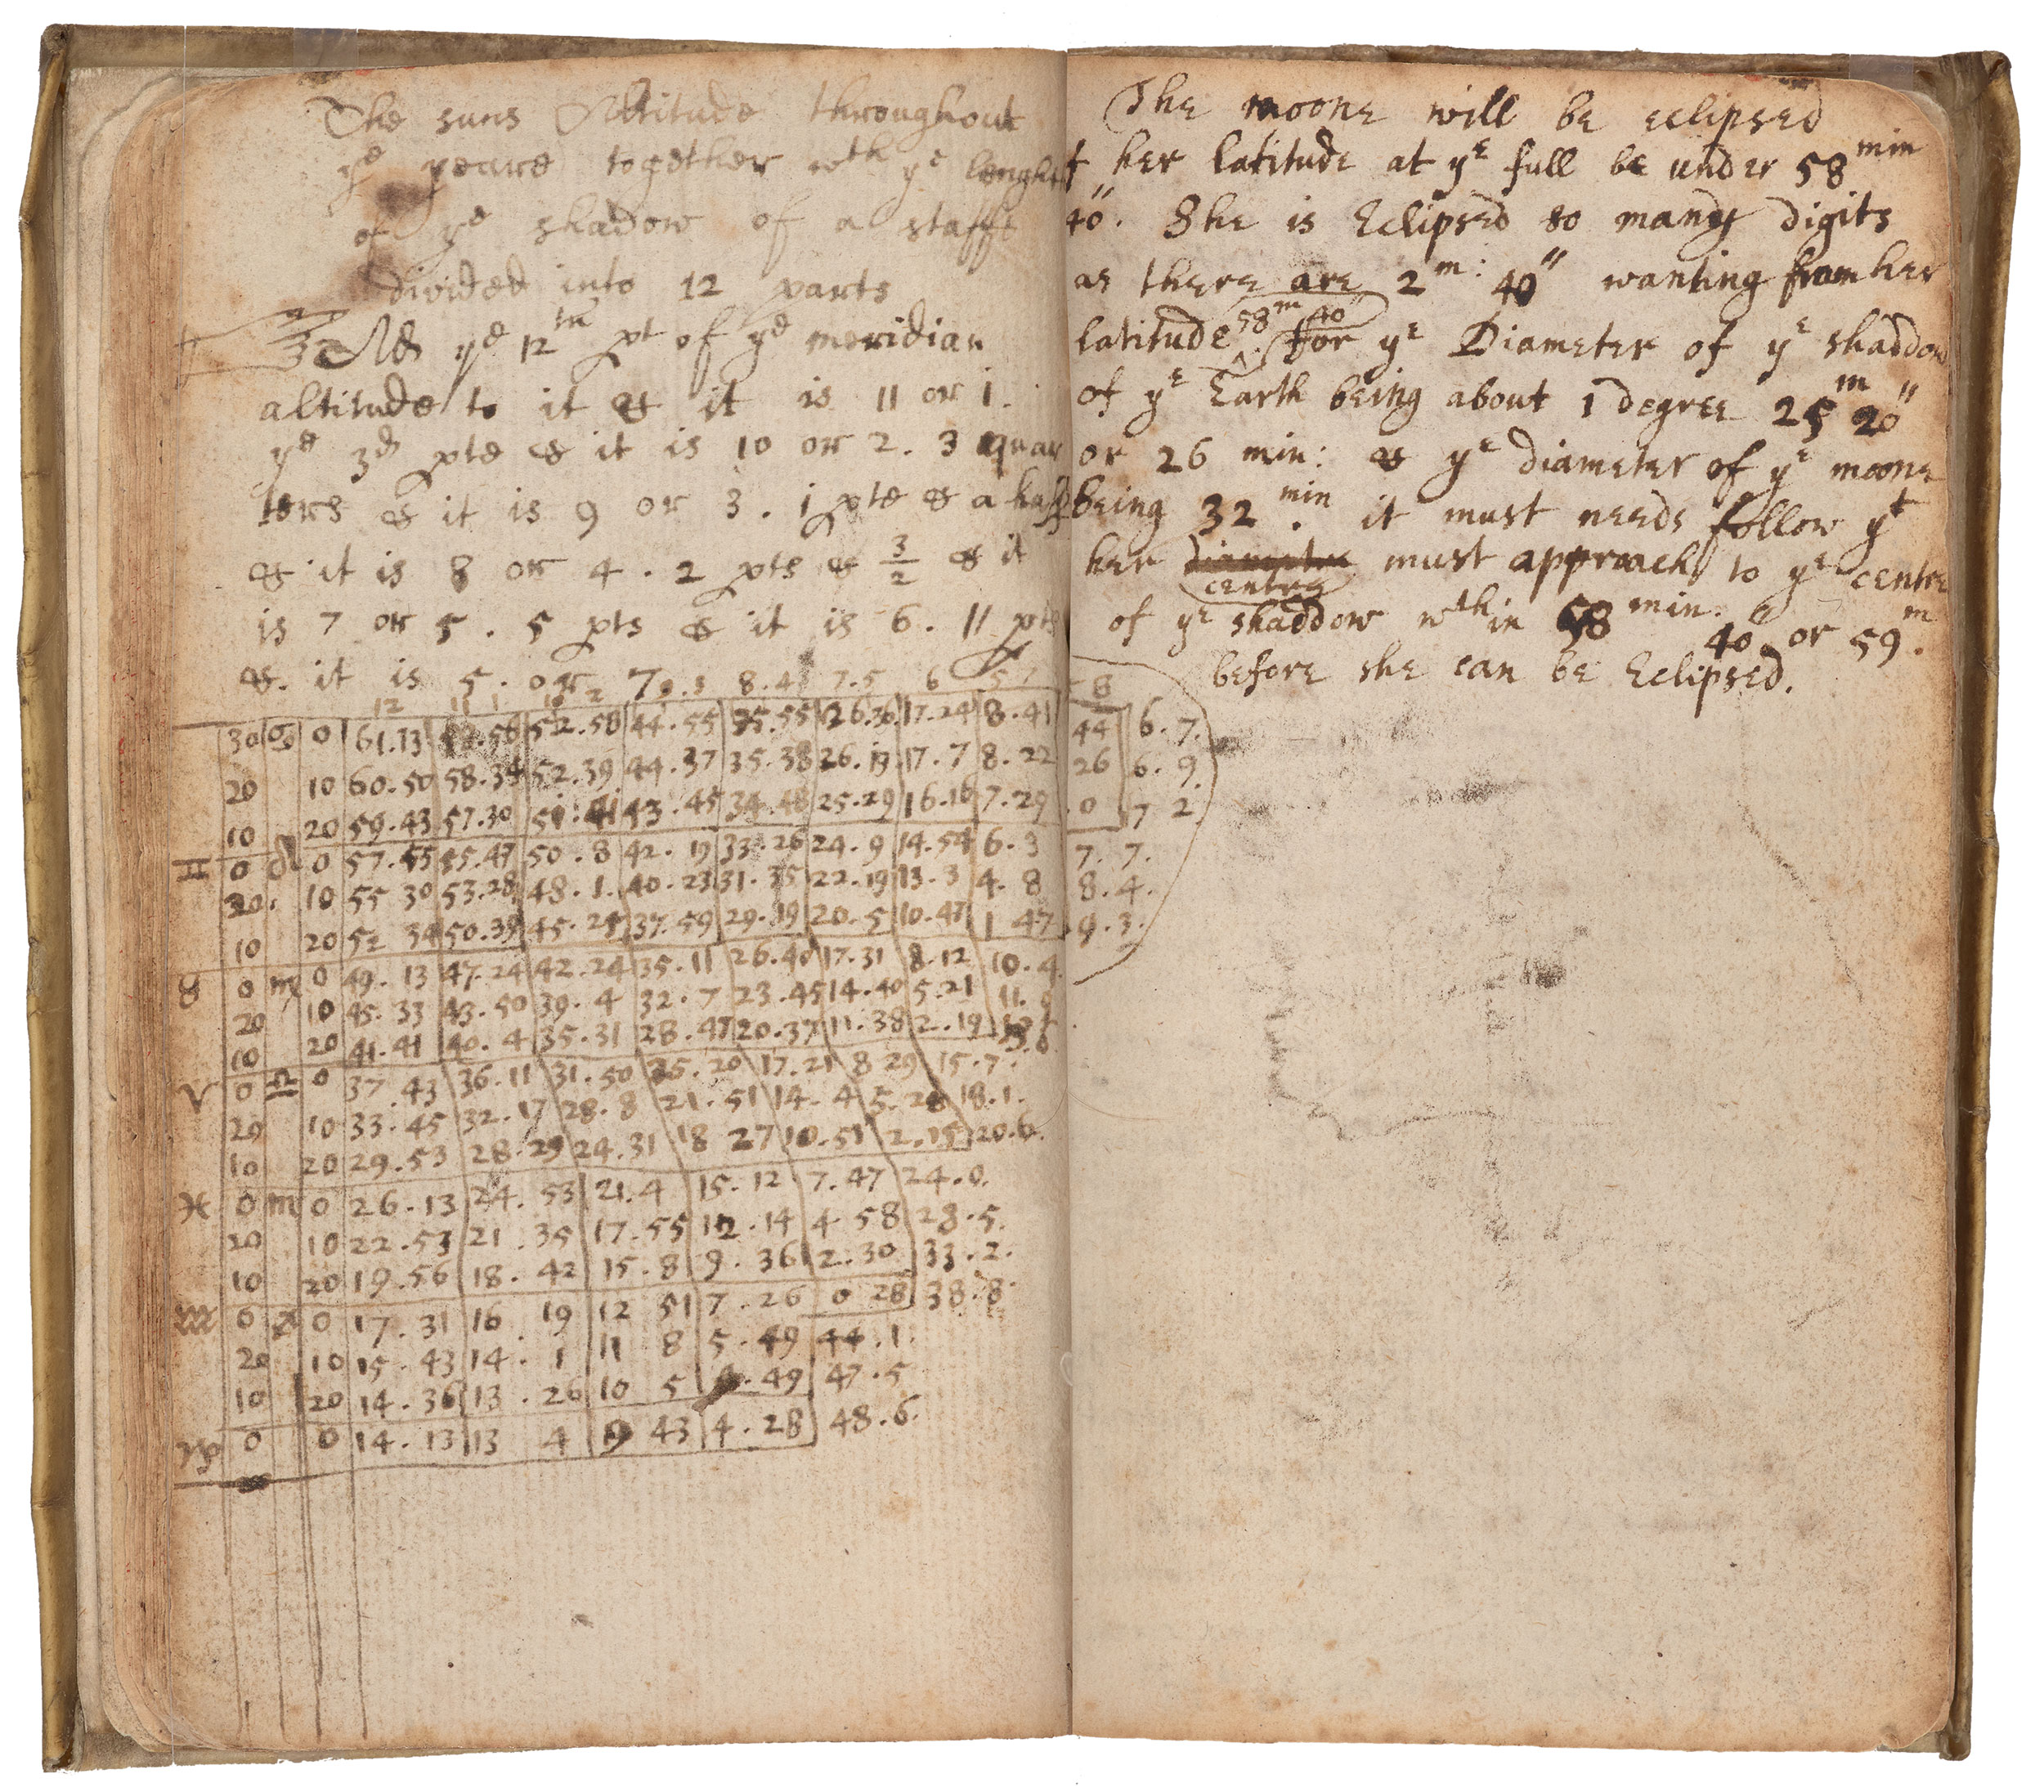 The suns Altitude throughout
ye yeare together wth ye lenght
of ye shadow of a staffe
divided into 12 parts
Add ye 12th pt of ye meridian
altitude to it & it is 11 or 1.
ye 3d pte & it is 10 or 2. 3 quar
ters & it is 9 or 3. 1 pte & a half
& it is 8 or 4. 2 pts & 3/2 & it
is 7 or 5. 5 pts & it is 6. 11 pts
&. it is 5. or 7
12 11 1 10 2 9.3 8.4 7.5 6 5 7 8
30 ♋ 0 61.13 56 52.58 44.55 35.55 26.36 17.24 8.41 44 6.7.
20 10 60.50 58.34 52.39 44.37 35.38 26.19 17.7 8.22 26 6.9.
10 20 59.43 57.30 51.41 43.45 34.48 25.29 16.16 7.29 0 7 2.
♊ 0 ♌ 0 57.55 55.47 50.8 42.19 33.26 24.9 14.54 6.3 7.7.
20. 10 55 30 53.28 48.1. 40.23 31.35 22.19 13.3 4.8 8.4.
10 20 52 34 50.39 45.25 37.59 29.19 20.5 10.47 1 47 9.3.
♉ 0 ♍ 0 49.13 47.24 42.24 35.11 26.40 17.31 8.12 10.4.
20 10 45.33 43.50 39.4 32.7 23.45 14.40 5.21 11.
10 20 41.41 40.4 35.31 28.47 20.37 11.38 2.19
♈ 0 ♎ 0 37.43 36.11 31.50 25.20 17.21 8 29 15.7.
20 10 33.45 32.17 28.8 21.51 14.4 5.28 18.1.
10 20 29.53 28.29 24.31 18 27 10.51 2.15 20.6.
♓ 0 ♏ 0 26.13 24.53 21.4 15.12 7.47 24.0.
20 10 22.53 21.35 17.55 12.14 4 58 28.5.
10 20 19.56 18.42 15.8 9.36 2.30 33.2.
♒ 0 ♐ 0 17.31 16.19 12 51 7.26 0 28 38.8.
20 10 15.43 14.1 11 8 5.49 44.1.
10 20 14.36 13.26 10 5 .49 47.5
♑ 0 0 14.13 13 4 9 43 4.28 48.6.
The moone will be eclipsed
her latitude at ye full be under 58 min
40". She is Eclipsed so many digits
as there are 2 m: 40" wanting from her
latitude 58 m 40 For ye Diameter of ye shaddow
of ye Earth being about 1 degree 25 m 20"
or 26 min: & ye diameter of ye moone
being 32 min. it must needs follow yt
her diameter centre must approach to ye centre
of ye shaddow wthin 58 min. 40" or 59 m.
before she can be Eclipsed.